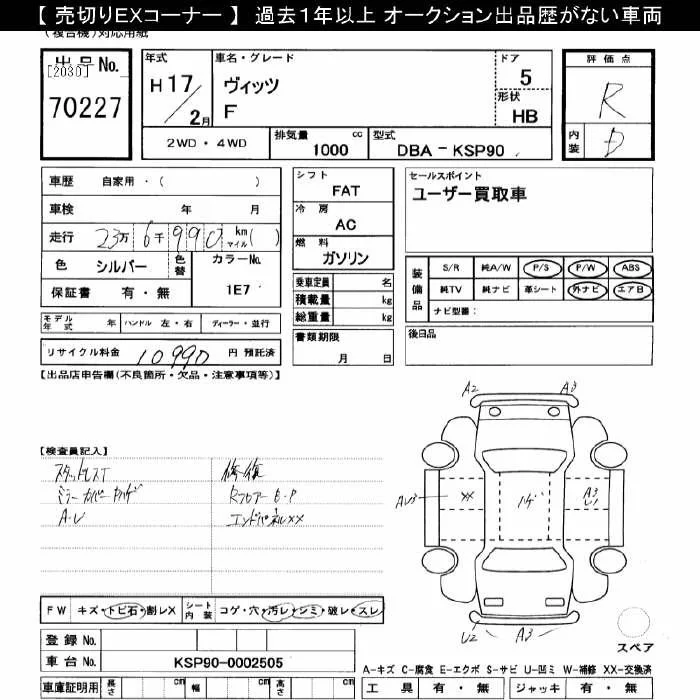 【 売切りEXコーナー 】 過去1年以上 オークション出品歴がない車両
(複合機)対応用紙
出品No.
[2030]
70227
年式
H 17 / 2月
車名・グレード
ヴィッツ
F
ドア
5
形状
HB
評価点
R
内装
D
2WD ・ 4WD
排気量 cc
1000
型式
DBA － KSP90
車歴 自家用 ・ ( )
車検 年 月
走行 23万 6千 990 km マイル ( )
色 シルバー
色替
カラーNo.
1E7
保証書 有 ・ 無
モデル年式 年 ハンドル 左・右 ディーラー・並行
リサイクル料金 10990 円 預託済
シフト
FAT
冷房
AC
燃料
ガソリン
乗車定員 名
積載量 kg
総重量 kg
書類期限
月 日
セールスポイント
ユーザー買取車
装備品
S/R 純A/W P/S P/W ABS
純TV 純ナビ 革シート 外ナビ エアB
ナビ型番：
後日品
【出品店申告欄(不良箇所・欠品・注意事項等)】
【検査員記入】
スタッドレスT
ミラーカバー
A・U
修復
エンドパネルXX
A2 A3
XX ハゲ A3
U2 A3
スペア
FW キズ・トビ石・割レX
シート内装 コゲ・穴・汚レ・シミ・破レ・スレ
登録 No.
車台 No. KSP90-0002505
車庫証明用 長さ cm 幅 cm 高さ cm
A－キズ C－腐食 E－エクボ S－サビ U－凹ミ W－補修 XX－交換済
工具 有 ・ 無 ジャッキ 有 ・ 無